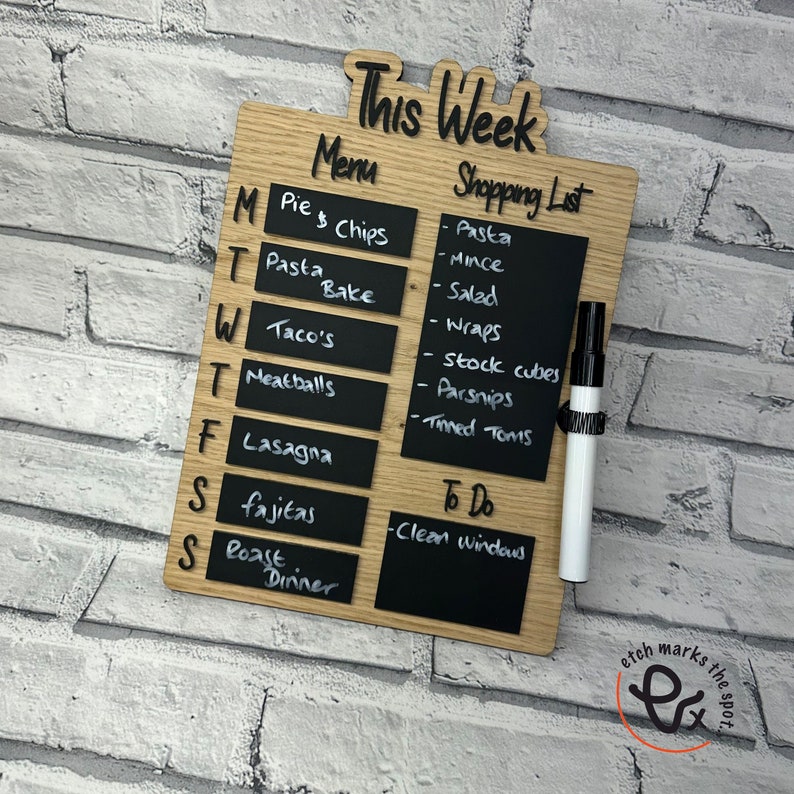 This Week
Menu
M
Pie
& Chips
T
Pasta
Bake
W
Taco's
T
Meatballs
F
Lasagna
S
fajitas
S
Roast
Dinner
Shopping List
- Pasta
- Mince
- Salad
- Wraps
- Stock cubes
- Parsnips
- Tinned Toms
To Do
- Clean Windows
etch marks the spot.
ex